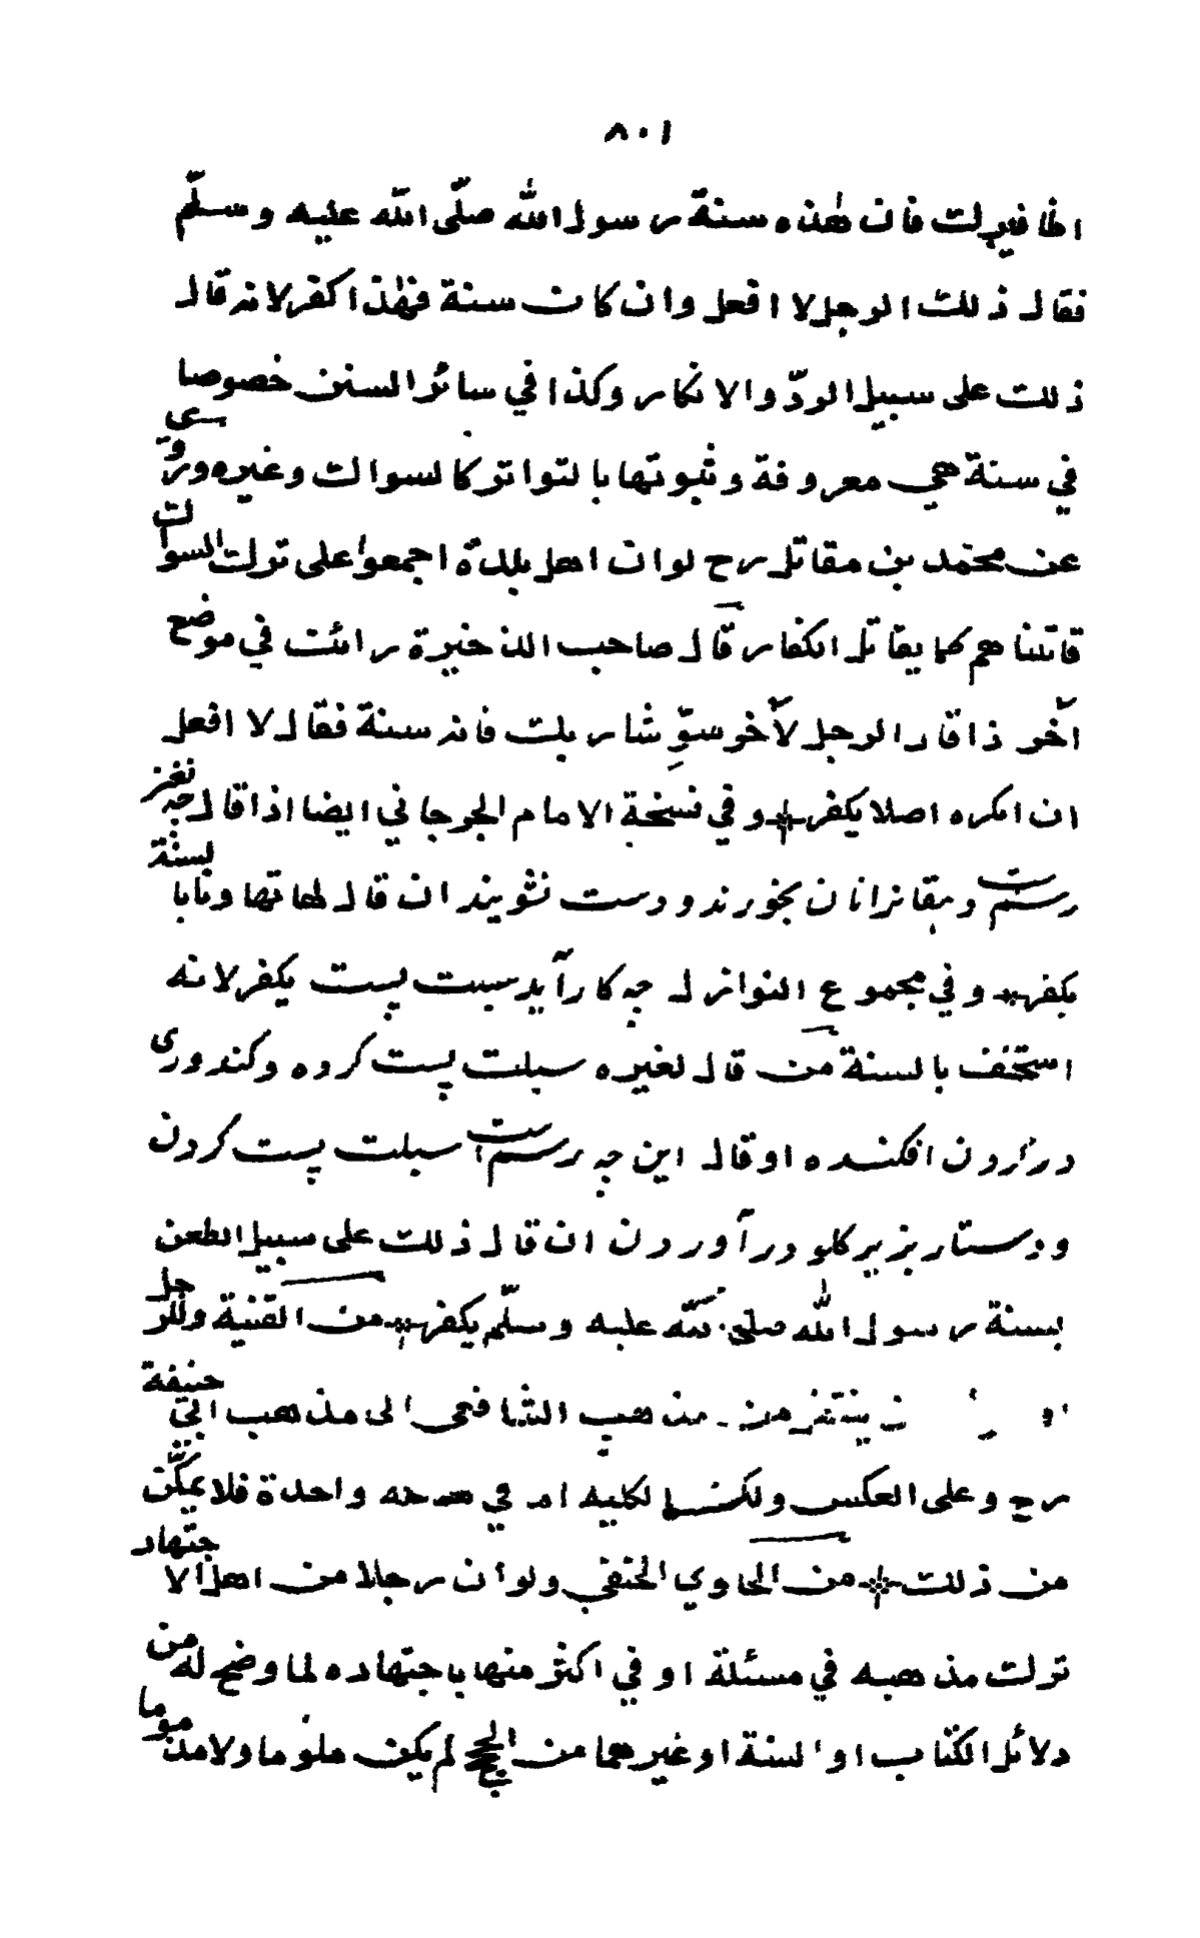 ٨٠١
اظافيرك فان هٰذه سنة رسول الله صلّى الله عليه وسلّم
فقال ذلك الرجل لا افعل وان كان سنة فهٰذا كفر لانه قال
ذلك على سبيل الردّ والانكار وكذا في سائر السنن خصوصا
في سنة هي معروفة وثبوتها بالتواتر كالسواك وغيره وروى
عن محمّد بن مقاتل رح لو ان اهل بلدة اجمعوا على ترك السواك
قاتلناهم كما يقاتل الكفار قال صاحب الذخيرة رائت في موضع
آخر ذا قال الرجل لآخر سوِّ شاربك فانه سنة فقال لا افعل
ان انكره اصلا يكفر وفي نسخة الامام الجرجاني ايضا اذا قال چه نغز
رسمست دهقانرانان بخورند ودست نشويند ان قال لها تهاونا بالسنة
يكفر وفي مجموع النوازل چه كار آيد سبلت پست يكفر لانه
استخف بالسنة من قال لغيره سبلت پست كرده وكندورى
درازرون افكنده او قال اين چه رسمست سبلت پست كردن
ودستار بزير كلو درآوردن ان قال ذلك على سبيل الطعن
بسنة رسول الله صلى الله عليه وسلّم يكفر من القنية وللرجل
ان ينتقل من مذهب الشافعى الى مذهب ابي حنيفة
رح وعلى العكس ولكن بالكلية اما في مسئلة واحدة فلا يمكّن
من ذلك من الحاوي الحنفي ولو أن رجلا من اهل الاجتهاد
ترك مذهبه في مسئلة او في اكثر منها باجتهاده لما وضح له من
دلائل الكتاب او السنة او غيرهما من الحجج لم يكن ملوما ولا مذموما